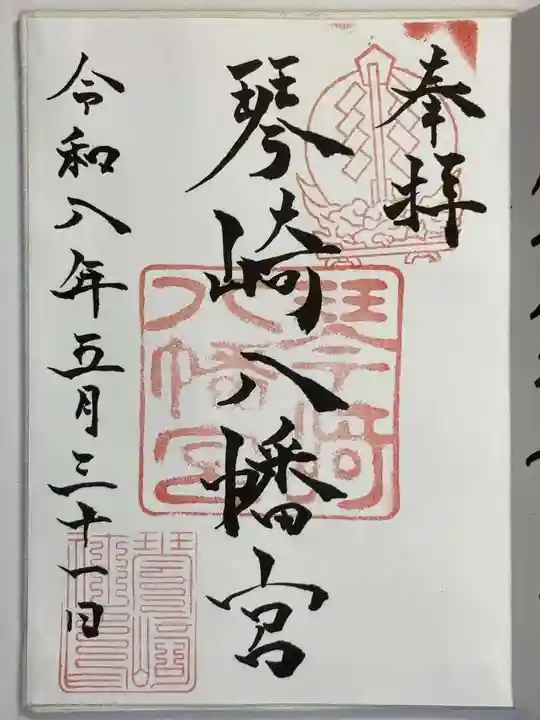 奉拝
琴崎八幡宮
令和八年五月三十一日
琴崎八幡宮